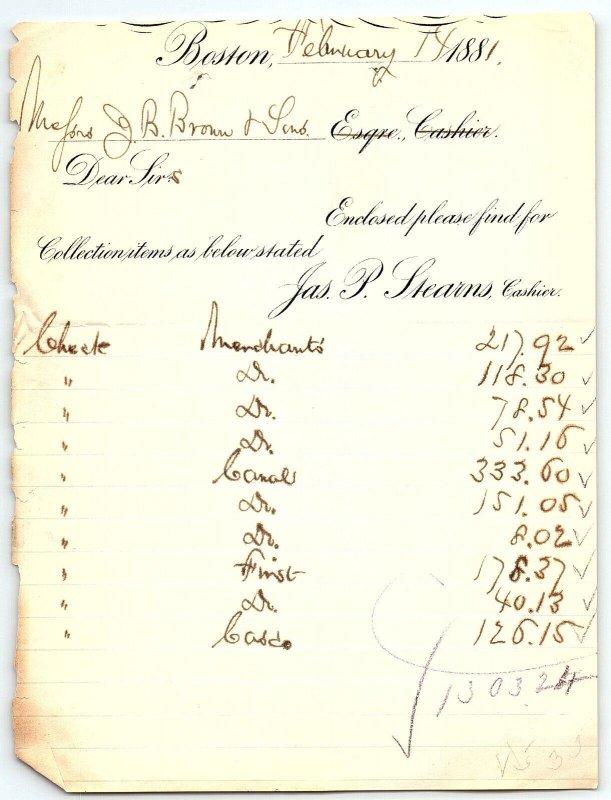 Boston, February 14 1881.
Messrs J. B. Brown & Sons. Esqre., Cashier.
Dear Sirs
Enclosed please find for
Collection items as below stated
Jas. P. Stearns, Cashier.
Check Merchants 217.92 ✓
" Do. 118.30 ✓
" Do. 78.54 ✓
" Do. 51.16 ✓
" Canal 333.60 ✓
" Do. 151.05 ✓
" Do. 8.02 ✓
" First 178.37 ✓
" Do. 40.13 ✓
" Casco 126.15 ✓
1303.24